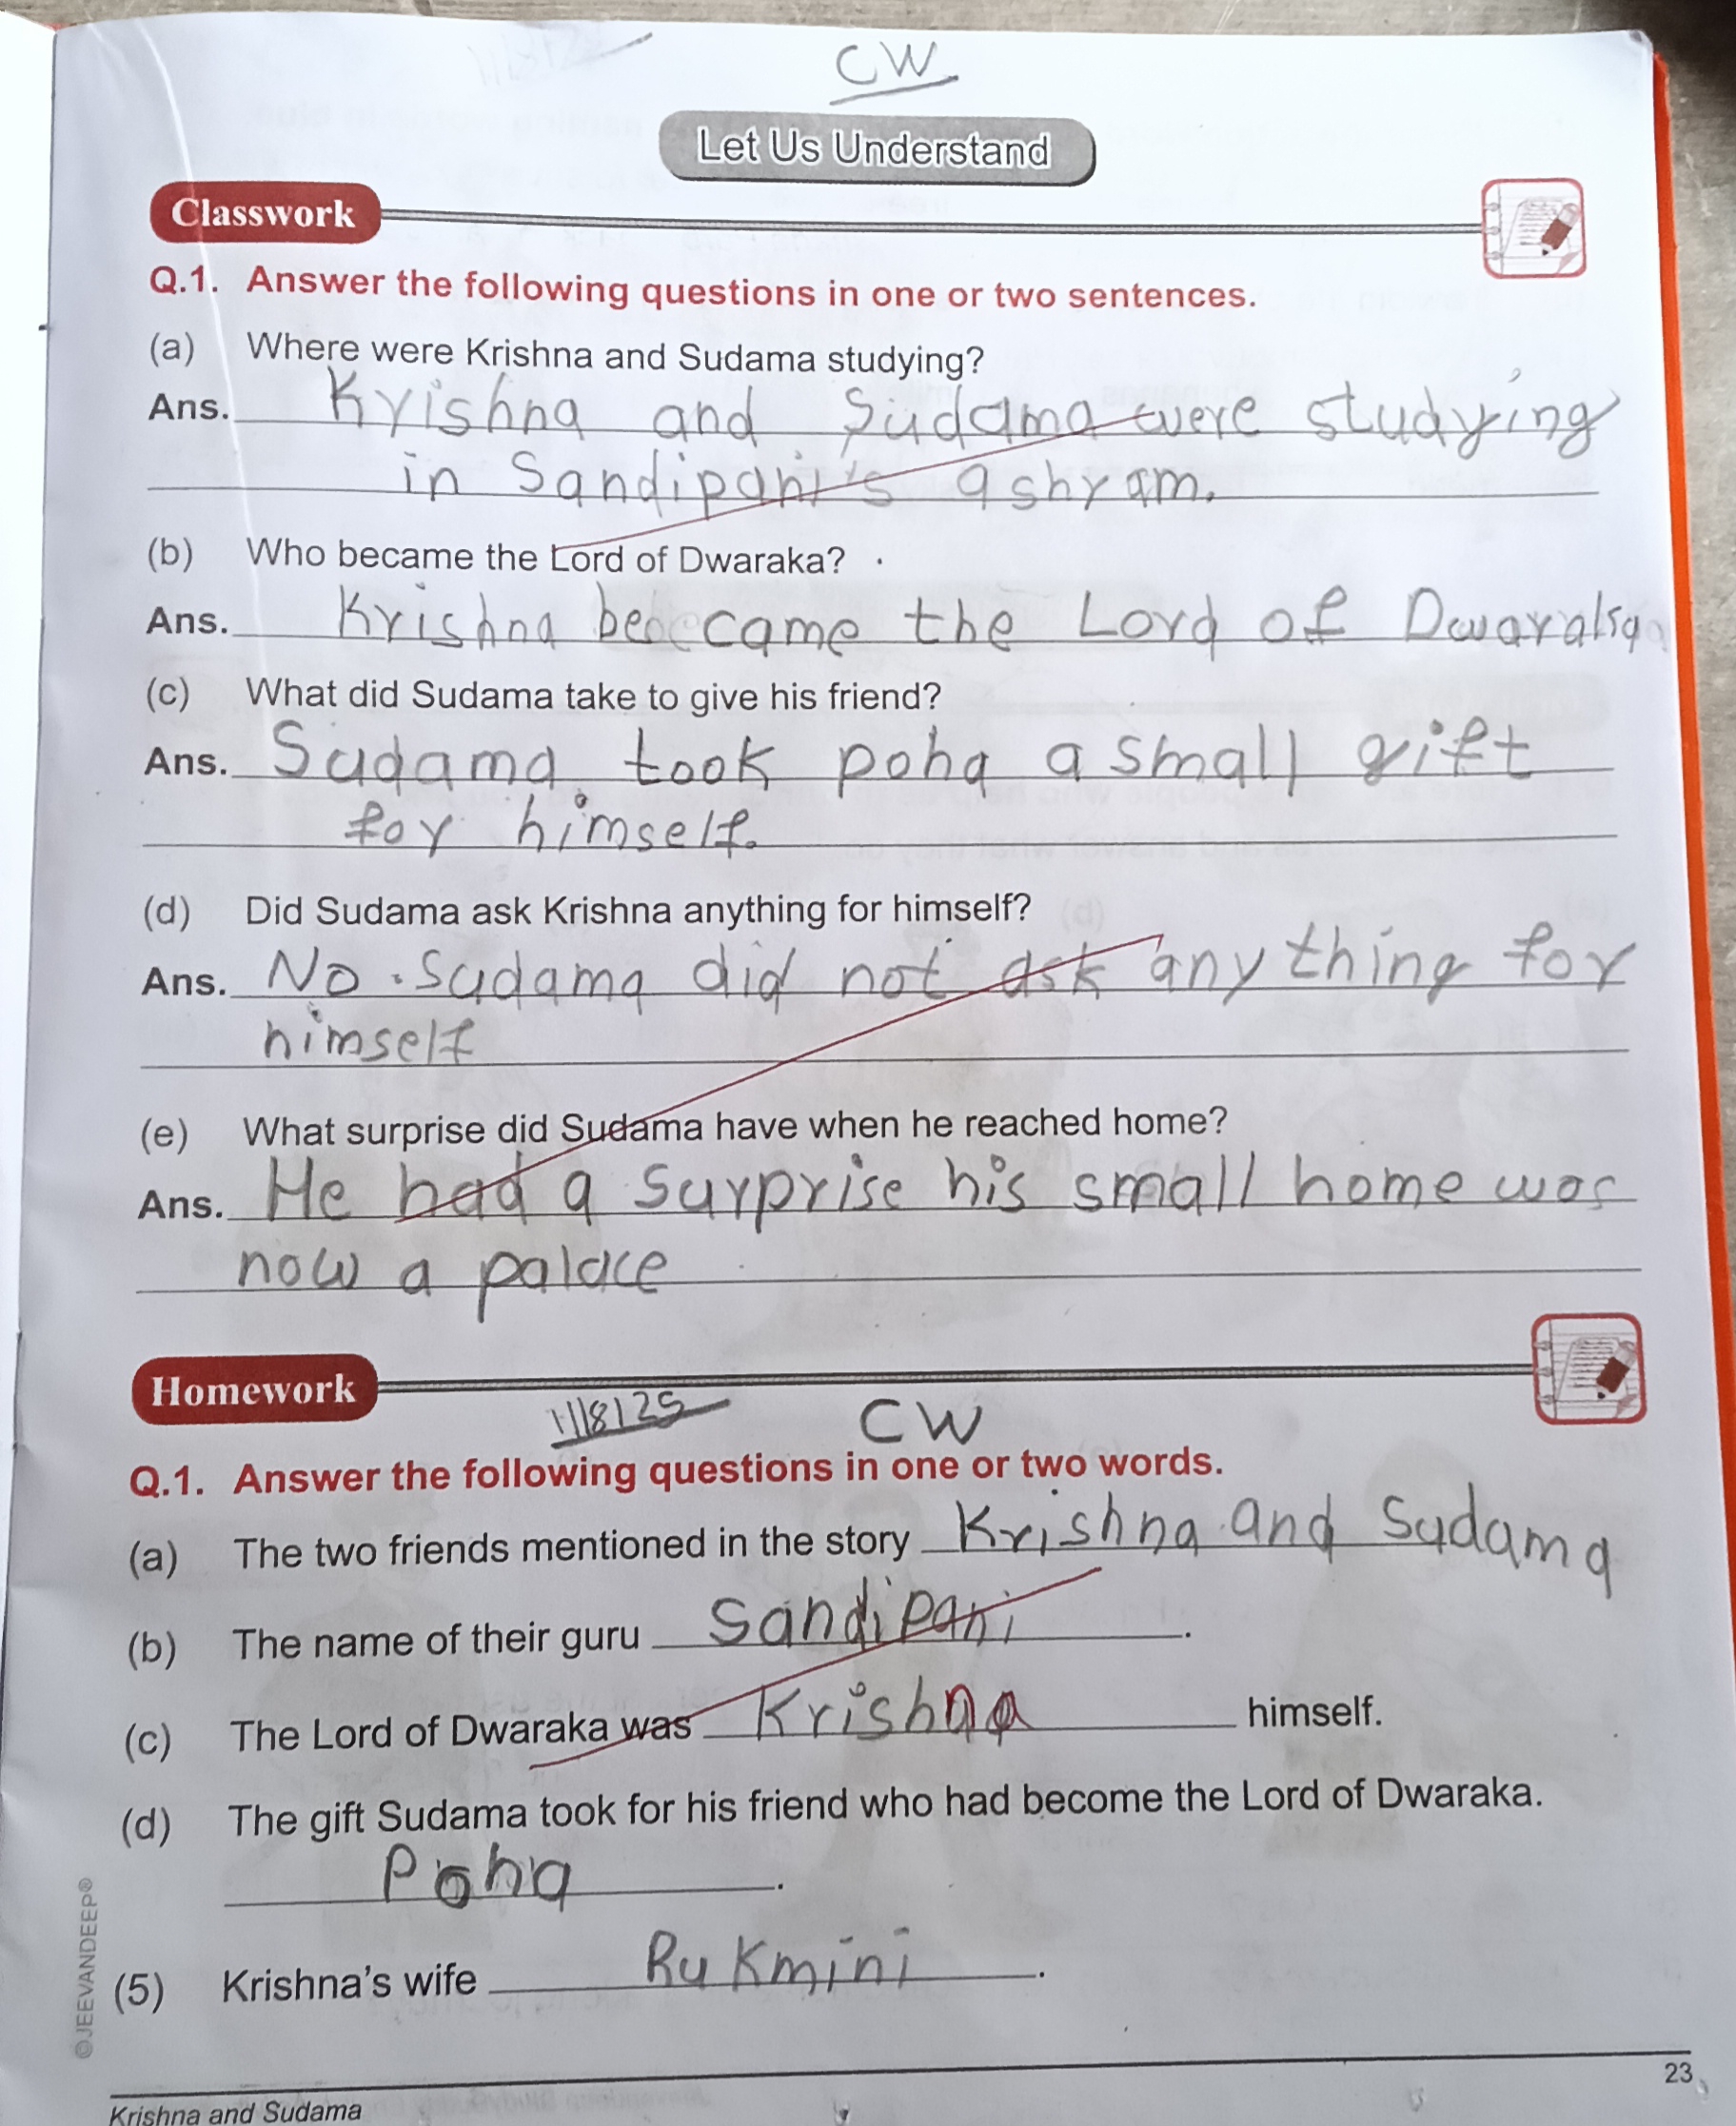 CW
Let Us Understand
Classwork
Q.1. Answer the following questions in one or two sentences.
(a) Where were Krishna and Sudama studying?
Ans. Krishna and Sudama were studying
in Sandipani's ashram.
(b) Who became the Lord of Dwaraka?
Ans. Krishna be came the Lord of Dwaraka
(c) What did Sudama take to give his friend?
Ans. Sudama took poha a small gift
for himself.
(d) Did Sudama ask Krishna anything for himself?
Ans. No. Sudama did not ask anything for
himself
(e) What surprise did Sudama have when he reached home?
Ans. He had a surprise his small home was
now a palace
Homework
11/8/25 CW
Q.1. Answer the following questions in one or two words.
(a) The two friends mentioned in the story Krishna and Sudama
(b) The name of their guru Sandipani.
(c) The Lord of Dwaraka was Krishna himself.
(d) The gift Sudama took for his friend who had become the Lord of Dwaraka.
Poha.
(5) Krishna's wife Rukmini.
©JEEVANDEEP®
23
Krishna and Sudama